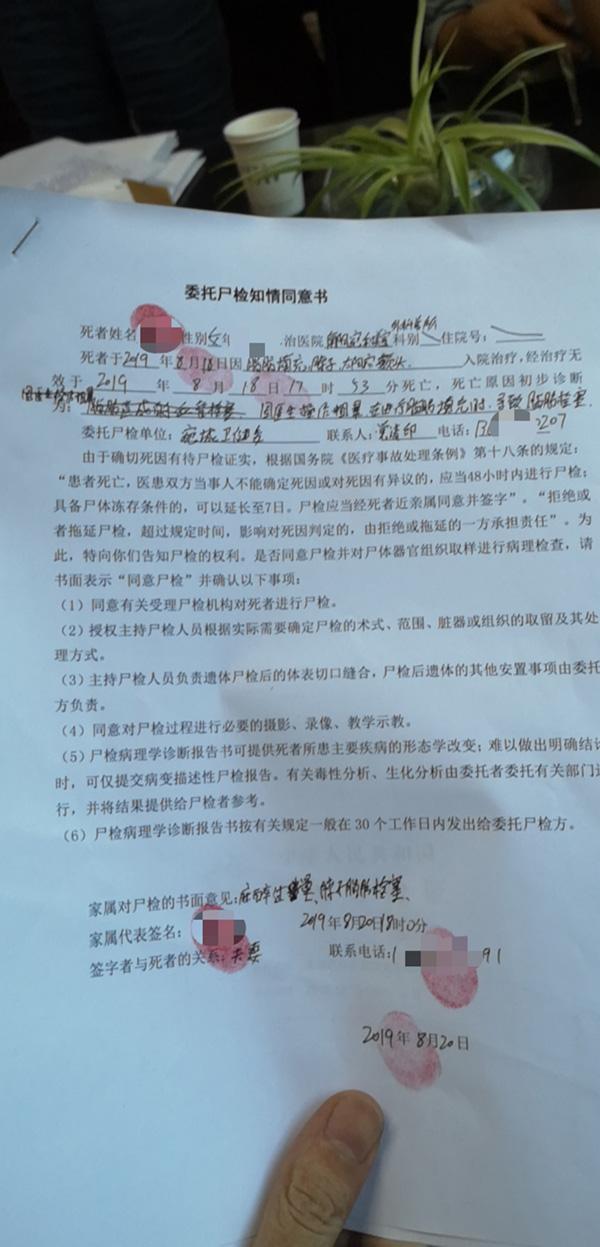 委托尸检知情同意书
死者姓名 性别女年 治医院 科别 住院号:
死者于2019年8月18日因脂肪填充、脖子、太阳穴、额头 入院治疗,经治疗无
效于 2019 年 8 月 18 日 17 时 53 分死亡,死亡原因初步诊断
为: 因医生操作 在进行脂肪填充时,导致脂肪栓塞.
委托尸检单位: 宛城卫健委 联系人: 电话:13 2207
由于确切死因有待尸检证实,根据国务院《医疗事故处理条例》第十八条的规定:
“患者死亡,医患双方当事人不能确定死因或对死因有异议的,应当48小时内进行尸检;
具备尸体冻存条件的,可以延长至7日。尸检应当经死者近亲属同意并签字”。“拒绝或
者拖延尸检,超过规定时间,影响对死因判定的,由拒绝或拖延的一方承担责任”。为
此,特向你们告知尸检的权利。是否同意尸检并对尸体器官组织取样进行病理检查,请
书面表示“同意尸检”并确认以下事项:
(1)同意有关受理尸检机构对死者进行尸检。
(2)授权主持尸检人员根据实际需要确定尸检的术式、范围、脏器或组织的取留及其处
理方式。
(3)主持尸检人员负责遗体尸检后的体表切口缝合,尸检后遗体的其他安置事项由委托
方负责。
(4)同意对尸检过程进行必要的摄影、录像、教学示教。
(5)尸检病理学诊断报告书可提供死者所患主要疾病的形态学改变;难以做出明确结论
时,可仅提交病变描述性尸检报告。有关毒性分析、生化分析由委托者委托有关部门进
行,并将结果提供给尸检者参考。
(6)尸检病理学诊断报告书按有关规定一般在 30 个工作日内发出给委托尸检方。
家属对尸检的书面意见:麻醉过量、脖子脂肪栓塞、
家属代表签名: 2019年8月20日18时0分
签字者与死者的关系:夫妻 联系电话:1 91
2019年 8月20日